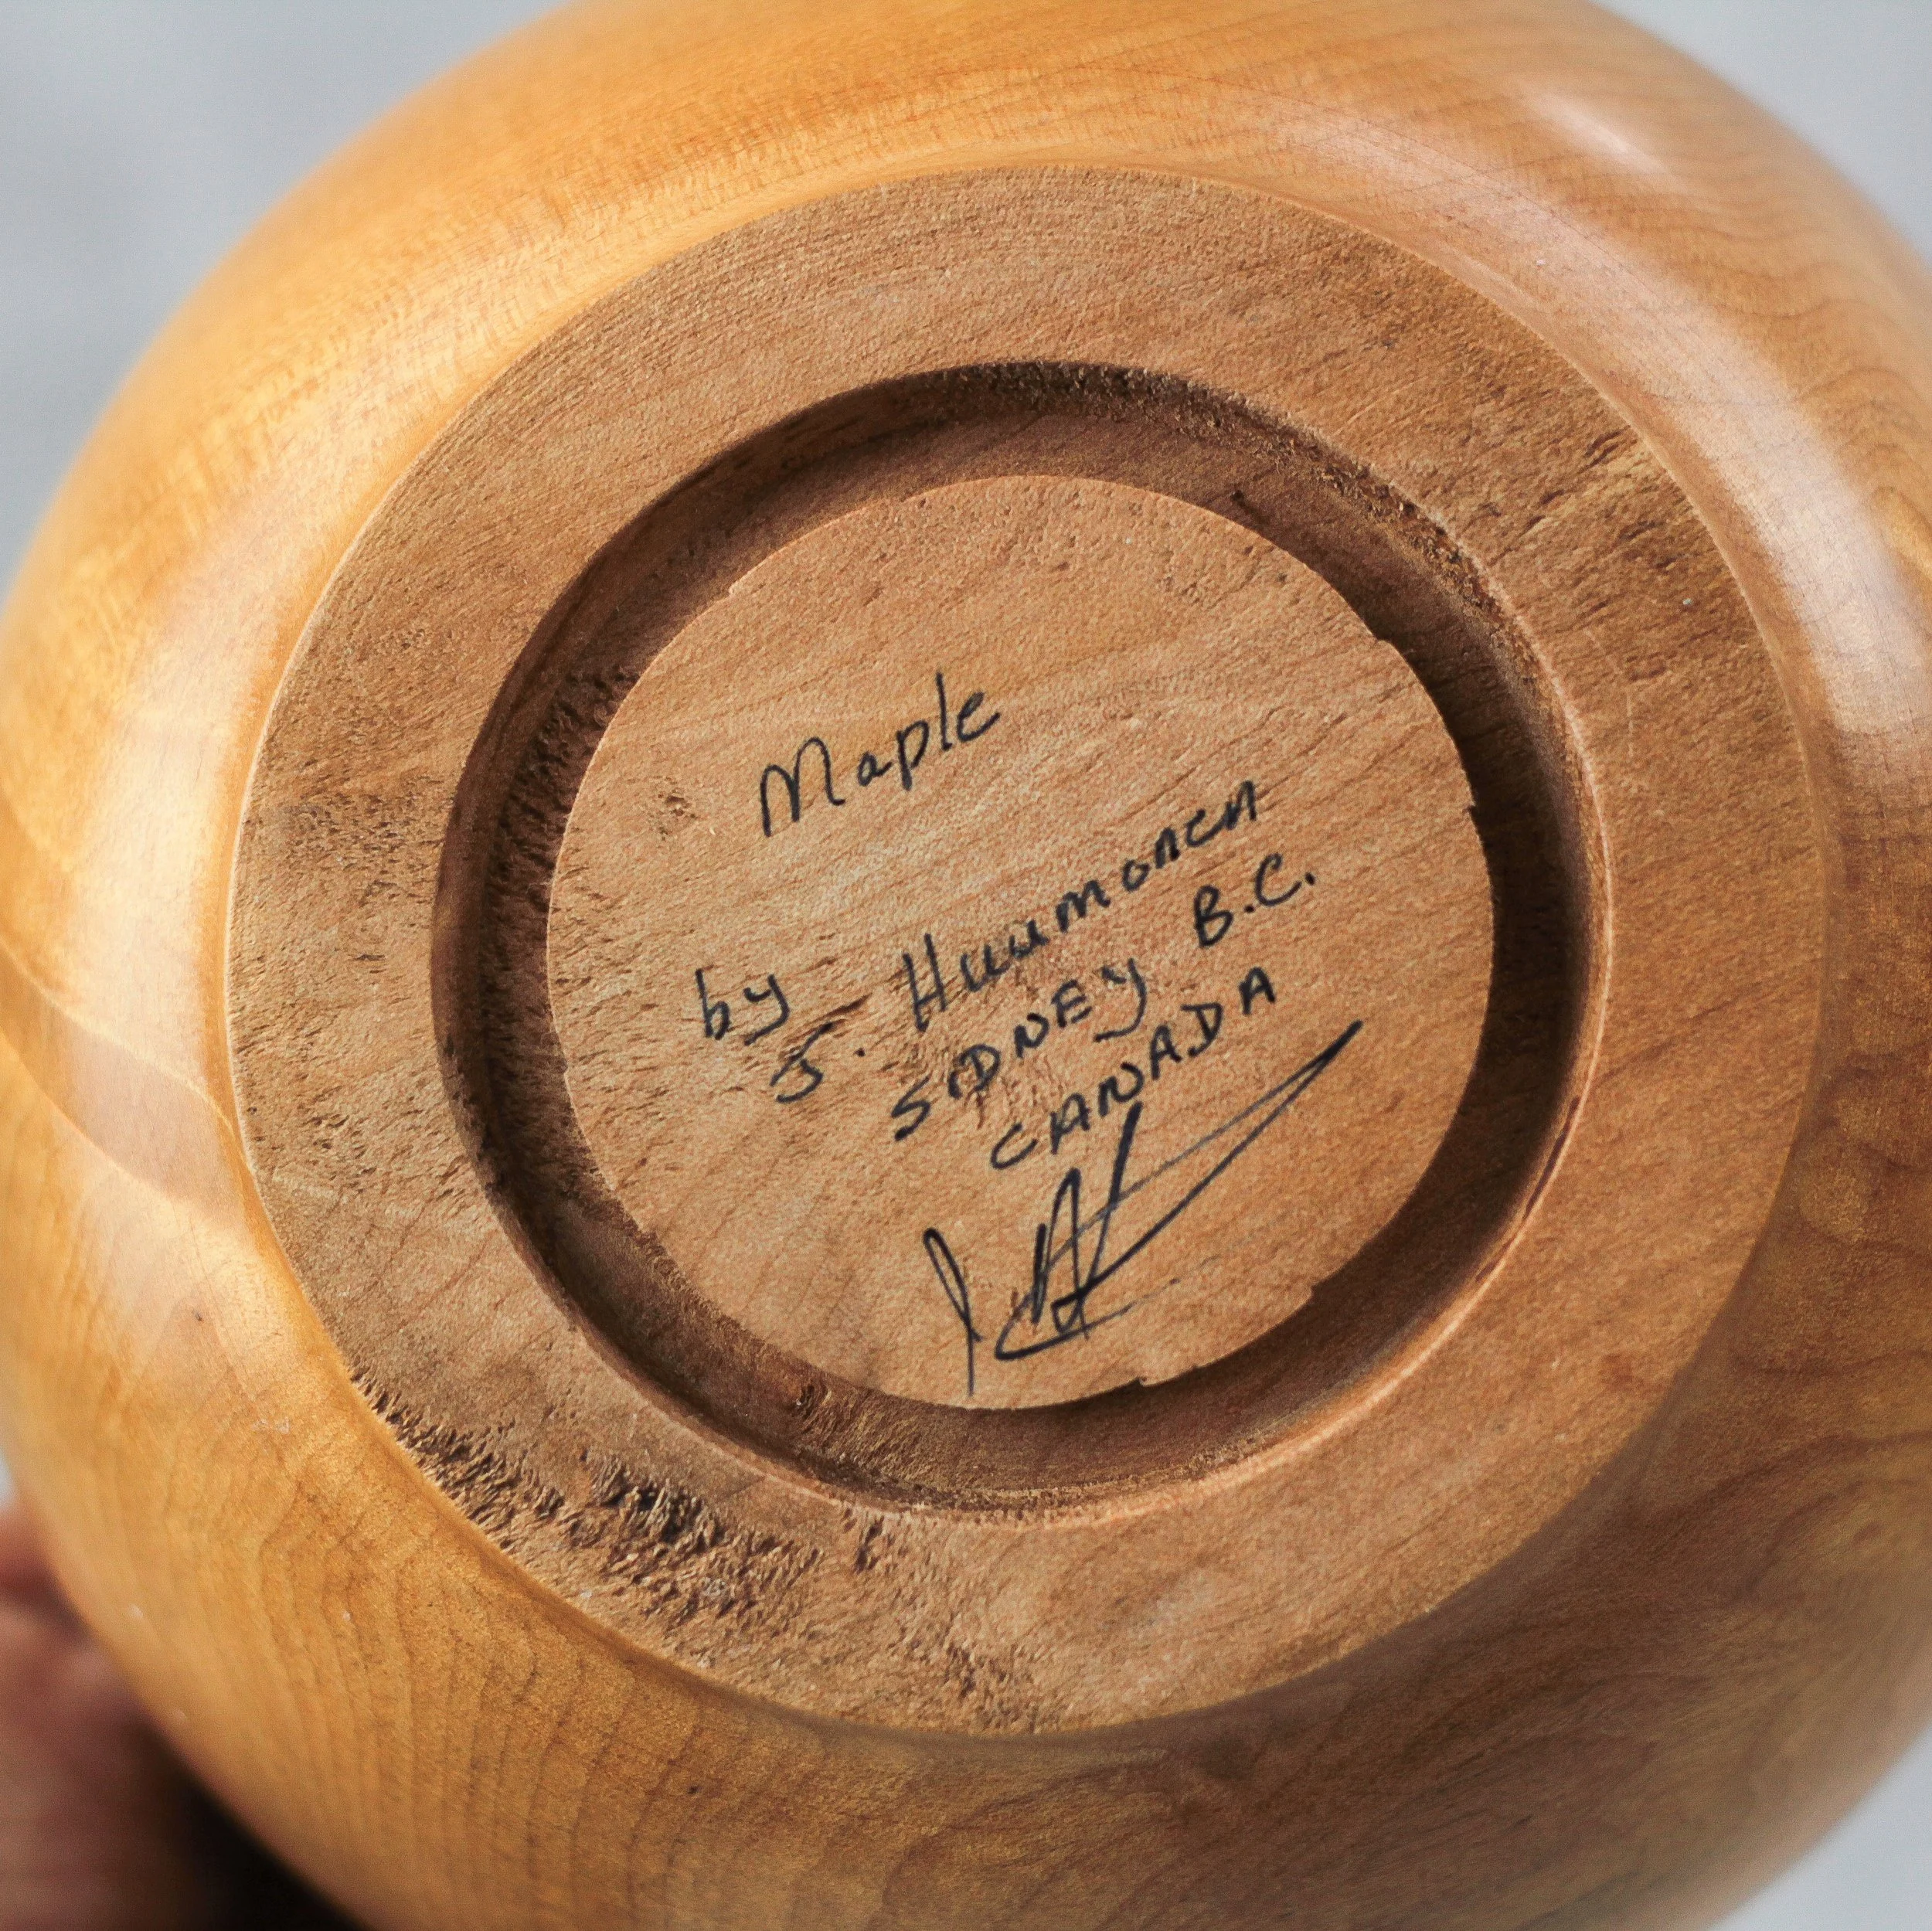 Maple
by
J.
SIDNEY B.C.
CANADA